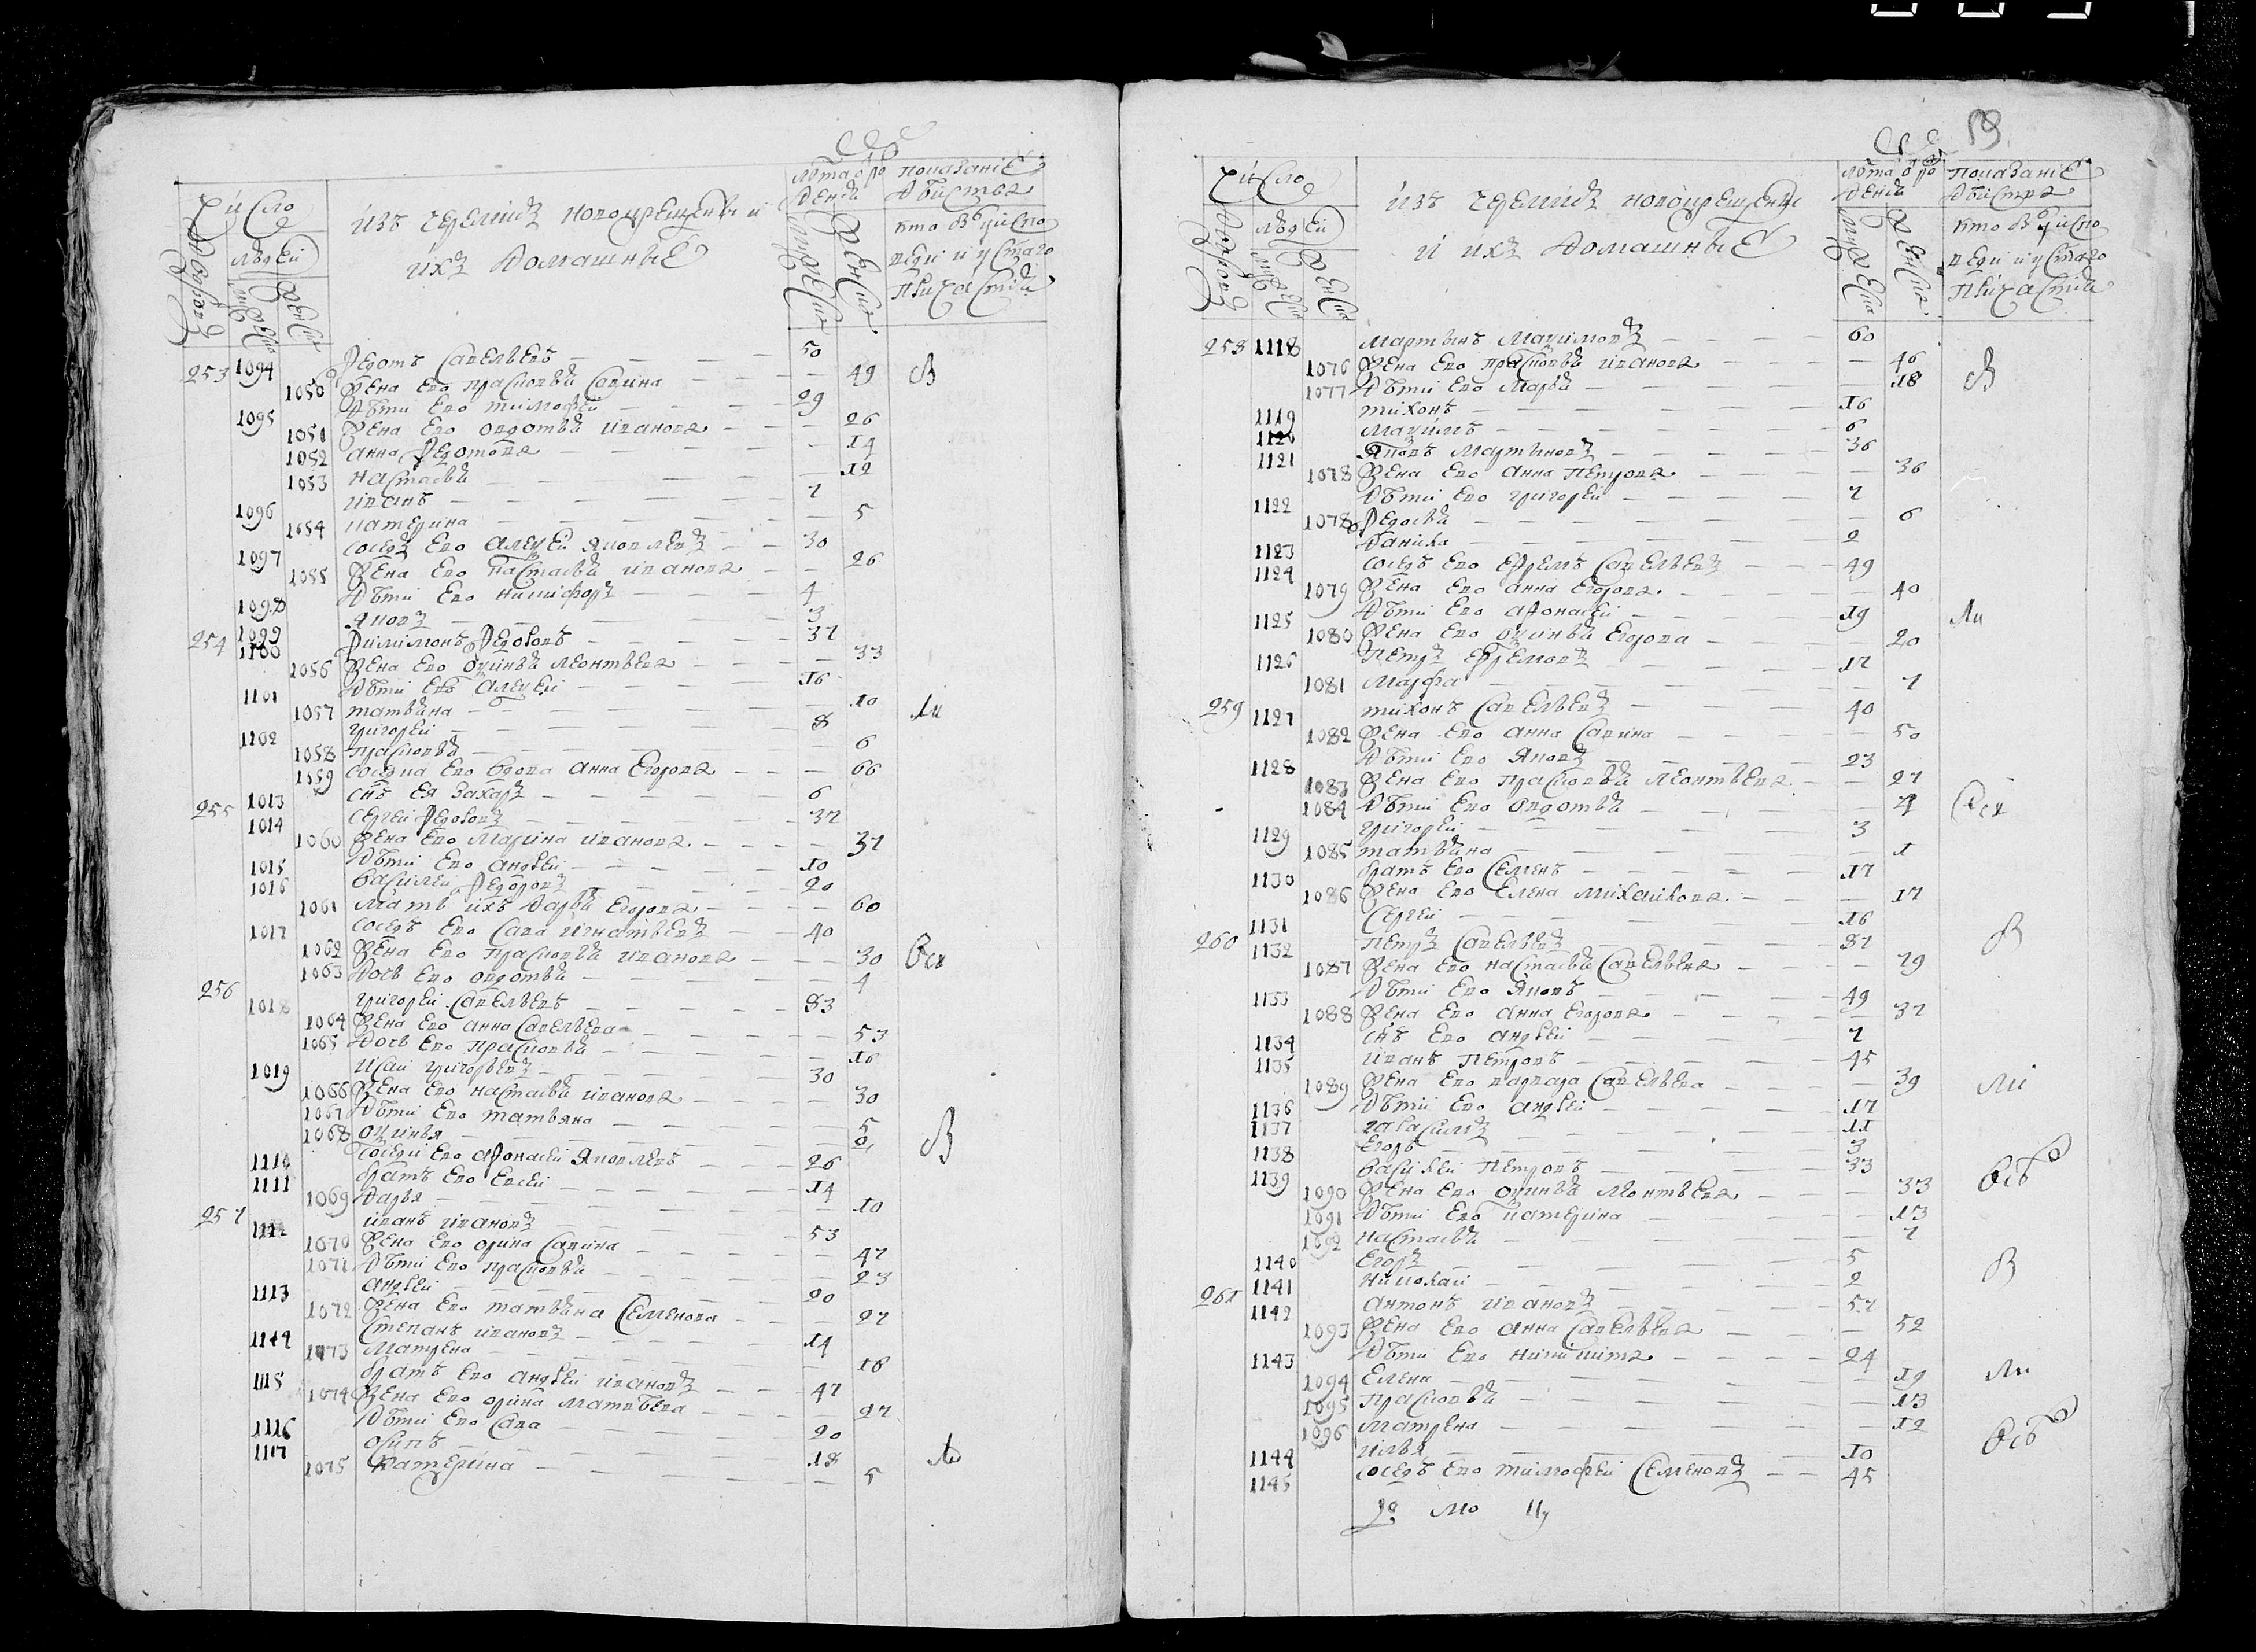 Число
Дворовъ
людей
мужеска
женска
изъ черемисъ новокрещены и
ихъ домашные
лѣта о ро
ждени
мужеска
женска
показание
действа
кто былъ у испо
веди и у святаго
причастия
253 1094 Федотъ Савельевъ 50
1050 Жена его Прасковья Савина 49
1095 Дѣти его Тимофей 29
1051 Жена его Овдотья Иванова 26
1052 Анна Федотова 14
1053 Настасья 12
1096 Иванъ 7
1054 Катерина 5
1097 Соседъ его Алексей Яковлевъ 30
1055 Жена его Настасья Иванова 26
1098 Дѣти его Никифоръ 4
1099 Яковъ 3
254 1100 Филимонъ Федоровъ 37
1056 Жена его Оксинья Леонтьева 33
1101 Дѣти его Алексей 16
1057 Татьяна 10
1102 Григорей 8
1058 Прасковья 6
1059 Соседка его вдова Анна Егорова 66
1013 Сынъ ея Захаръ 6
255 1014 Сергей Федоровъ 37
1060 Жена его Марина Иванова 37
1015 Дѣти его Андрей 10
1016 Василей Федоровъ 20
1061 Мать ихъ Дарья Егорова 60
1017 Соседъ его Сава Игнатьевъ 40
1062 Жена его Прасковья Иванова 30
1063 Дочь его Овдотья 4
256 1018 Григорей Савельевъ 53
1064 Жена его Анна Савельева 53
1065 Дочь его Прасковья 16
1019 Исай Григорьевъ 30
1066 Жена его Настасья Иванова 30
1067 Дѣти его Татьяна 5
1068 Оксинья 2
1110 Соседи его Афонасей Яковлевъ 26
1111 Братъ его Евсей 14
1069 Дарья 10
257 1112 Иванъ Ивановъ 53
1070 Жена его Орина Савина 47
1071 Дѣти его Прасковья 23
1113 Андрей 20
1072 Жена его Татьяна Семенова 27
1114 Степанъ Ивановъ 14
1073 Матрена 16
1115 Братъ его Андрей Ивановъ 47
1074 Жена его Орина Матвѣева 27
1116 Дѣти его Сава 20
1117 Осипъ 18
1075 Катерина 5
59
Число
Дворовъ
людей
мужеска
женска
изъ черемисъ новокрещены
и ихъ домашные
лѣта о ро
ждени
мужеска
женска
показание
действа
кто былъ у испо
веди и у святаго
причастия
258 1118 Мартынъ Максимовъ 60
1076 Жена его Прасковья Иванова 46
1077 Дѣти его Марья 18
1119 Тихонъ 16
1120 Максимъ 6
1121 Яковъ Мартыновъ 36
1078 Жена его Анна Петрова 36
1122 Дѣти его Григорей 7
1078 Федосья 6
1123 Данила 2
1124 Соседъ его Ефремъ Савельевъ 49
1079 Жена его Анна Егорова 40
1125 Дѣти его Афонасей 19
1080 Жена его Оксинья Егорова 20
1126 Петръ Ефремовъ 17
1081 Марфа 7
259 1127 Тихонъ Савельевъ 40
1082 Жена его Анна Савина 50
1128 Дѣти его Яковъ 23
1083 Жена его Прасковья Леонтьева 27
1084 Дѣти его Овдотья 4
1129 Григорей 3
1085 Татьяна 1
1130 Братъ его Семенъ 17
1086 Жена его Елена Михайлова 17
1131 Сергей 16
260 1132 Петръ Савельевъ 87
1087 Жена его Настасья Савельева 79
1133 Дѣти его Яковъ 49
1088 Жена его Анна Егорова 37
1134 Сынъ его Андрей 7
1135 Иванъ Петровъ 45
1089 Жена его Варвара Савельева 39
1136 Дѣти его Андрей 17
1137 Гаврилъ 11
1138 Егоръ 3
1139 Василей Петровъ 33
1090 Жена его Оксинья Леонтьева 33
1091 Дѣти его Катерина 13
1092 Настасья 7
1140 Егоръ 5
1141 Николай 2
261 1142 Антонъ Ивановъ 57
1093 Жена его Анна Савельева 52
1143 Дѣти его Никита 24
1094 Елена 19
1095 Прасковья 13
1096 Матрена 12
1144 Илья 10
1145 Соседъ его Тимофей Семеновъ 45